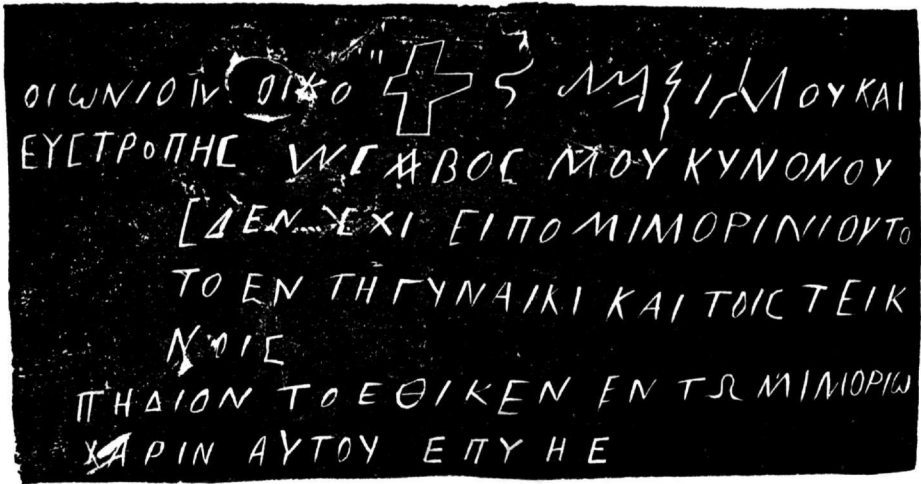 ΟΙωΝΙΟΙΝ ΟΙΚΟ ΜΑΞΙΜΟΥ ΚΑΙ
ΕΥΣΤΡΟΠΗΣ ΒΟΣ ΜΟΥ ΚΥΝΟΝΟΥ
ΔΕΝ ΕΧΙ ΕΙΠΟ ΜΙΜΟΡΙΝΙΟΥΤΟ
ΤΟ ΕΝ ΤΗ ΓΥΝΑΙΚΙ ΚΑΙ ΤΟΙΣ ΤΕΙΚ
ΝΟΙΣ
ΠΗΔΙΟΝ ΤΟ ΕΘΙΚΕΝ ΕΝ ΤΩ ΜΙΜΟΡΙω
ΧΑΡΙΝ ΑΥΤΟΥ ΕΠΥΗΕ